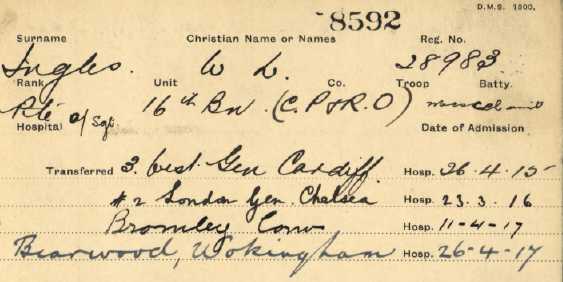 D.M.S. 1300.
8592
Surname Christian Name or Names Reg. No.
Ingles. W L. 28983
Rank Unit Co. Troop Batty.
Pte a/Sgt 16th Bn (C. P & R. O)
Hospital Date of Admission
Transferred 3. West. Gen Cardiff. Hosp. 26-4-15
#2 London Gen. Chelsea Hosp. 23.3.16
Bromley Conv Hosp. 11-4-17
Bearwood, Wokingham Hosp. 26-4-17